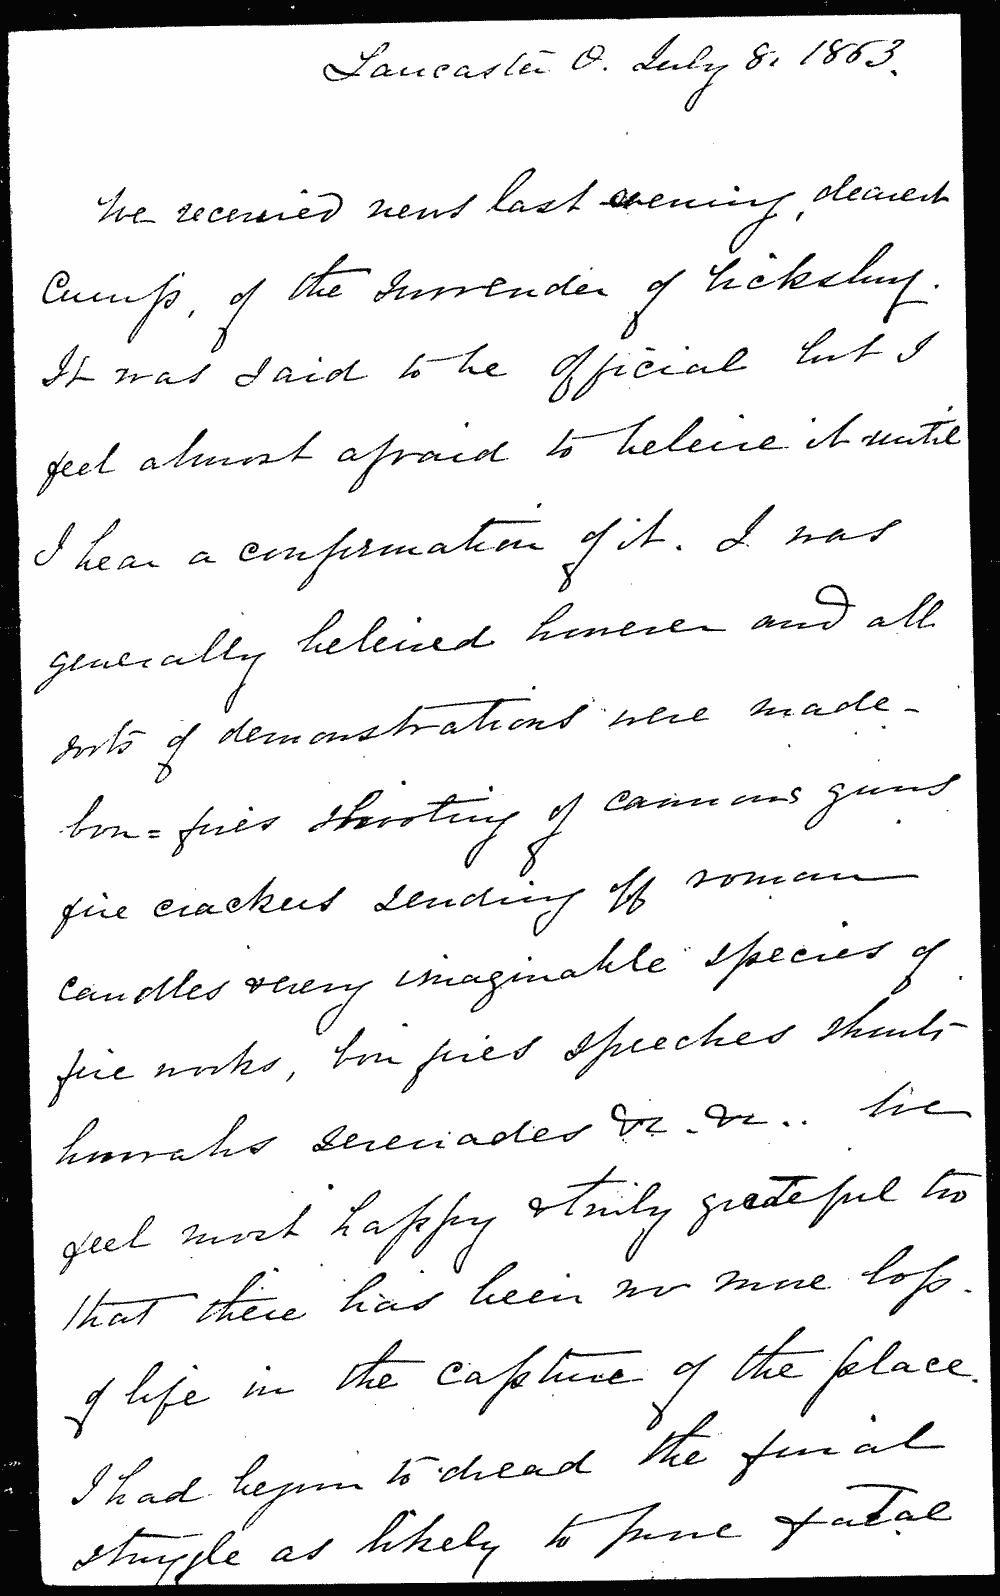 Lancaster O. July 8. 1863.
We receeived news last evening, dearest
Cump, of the surrender of Vicksburg.
It was said to be official but I
feel almost afraid to beleive it until
I hear a confirmation of it. I was
generally beleived however and all
sorts of demonstrations were made –
bon=fires shooting of cannons guns
fire crackers sending off roman
candles & every imaginable species of
fire works, bon fires speeches shouts
hurrahs serenades &c. &c.. We
feel most happy & truly grateful too
that there has been no more loss
of life in the capture of the place.
I had begun to dread the final
struggle as likely to prove fatal